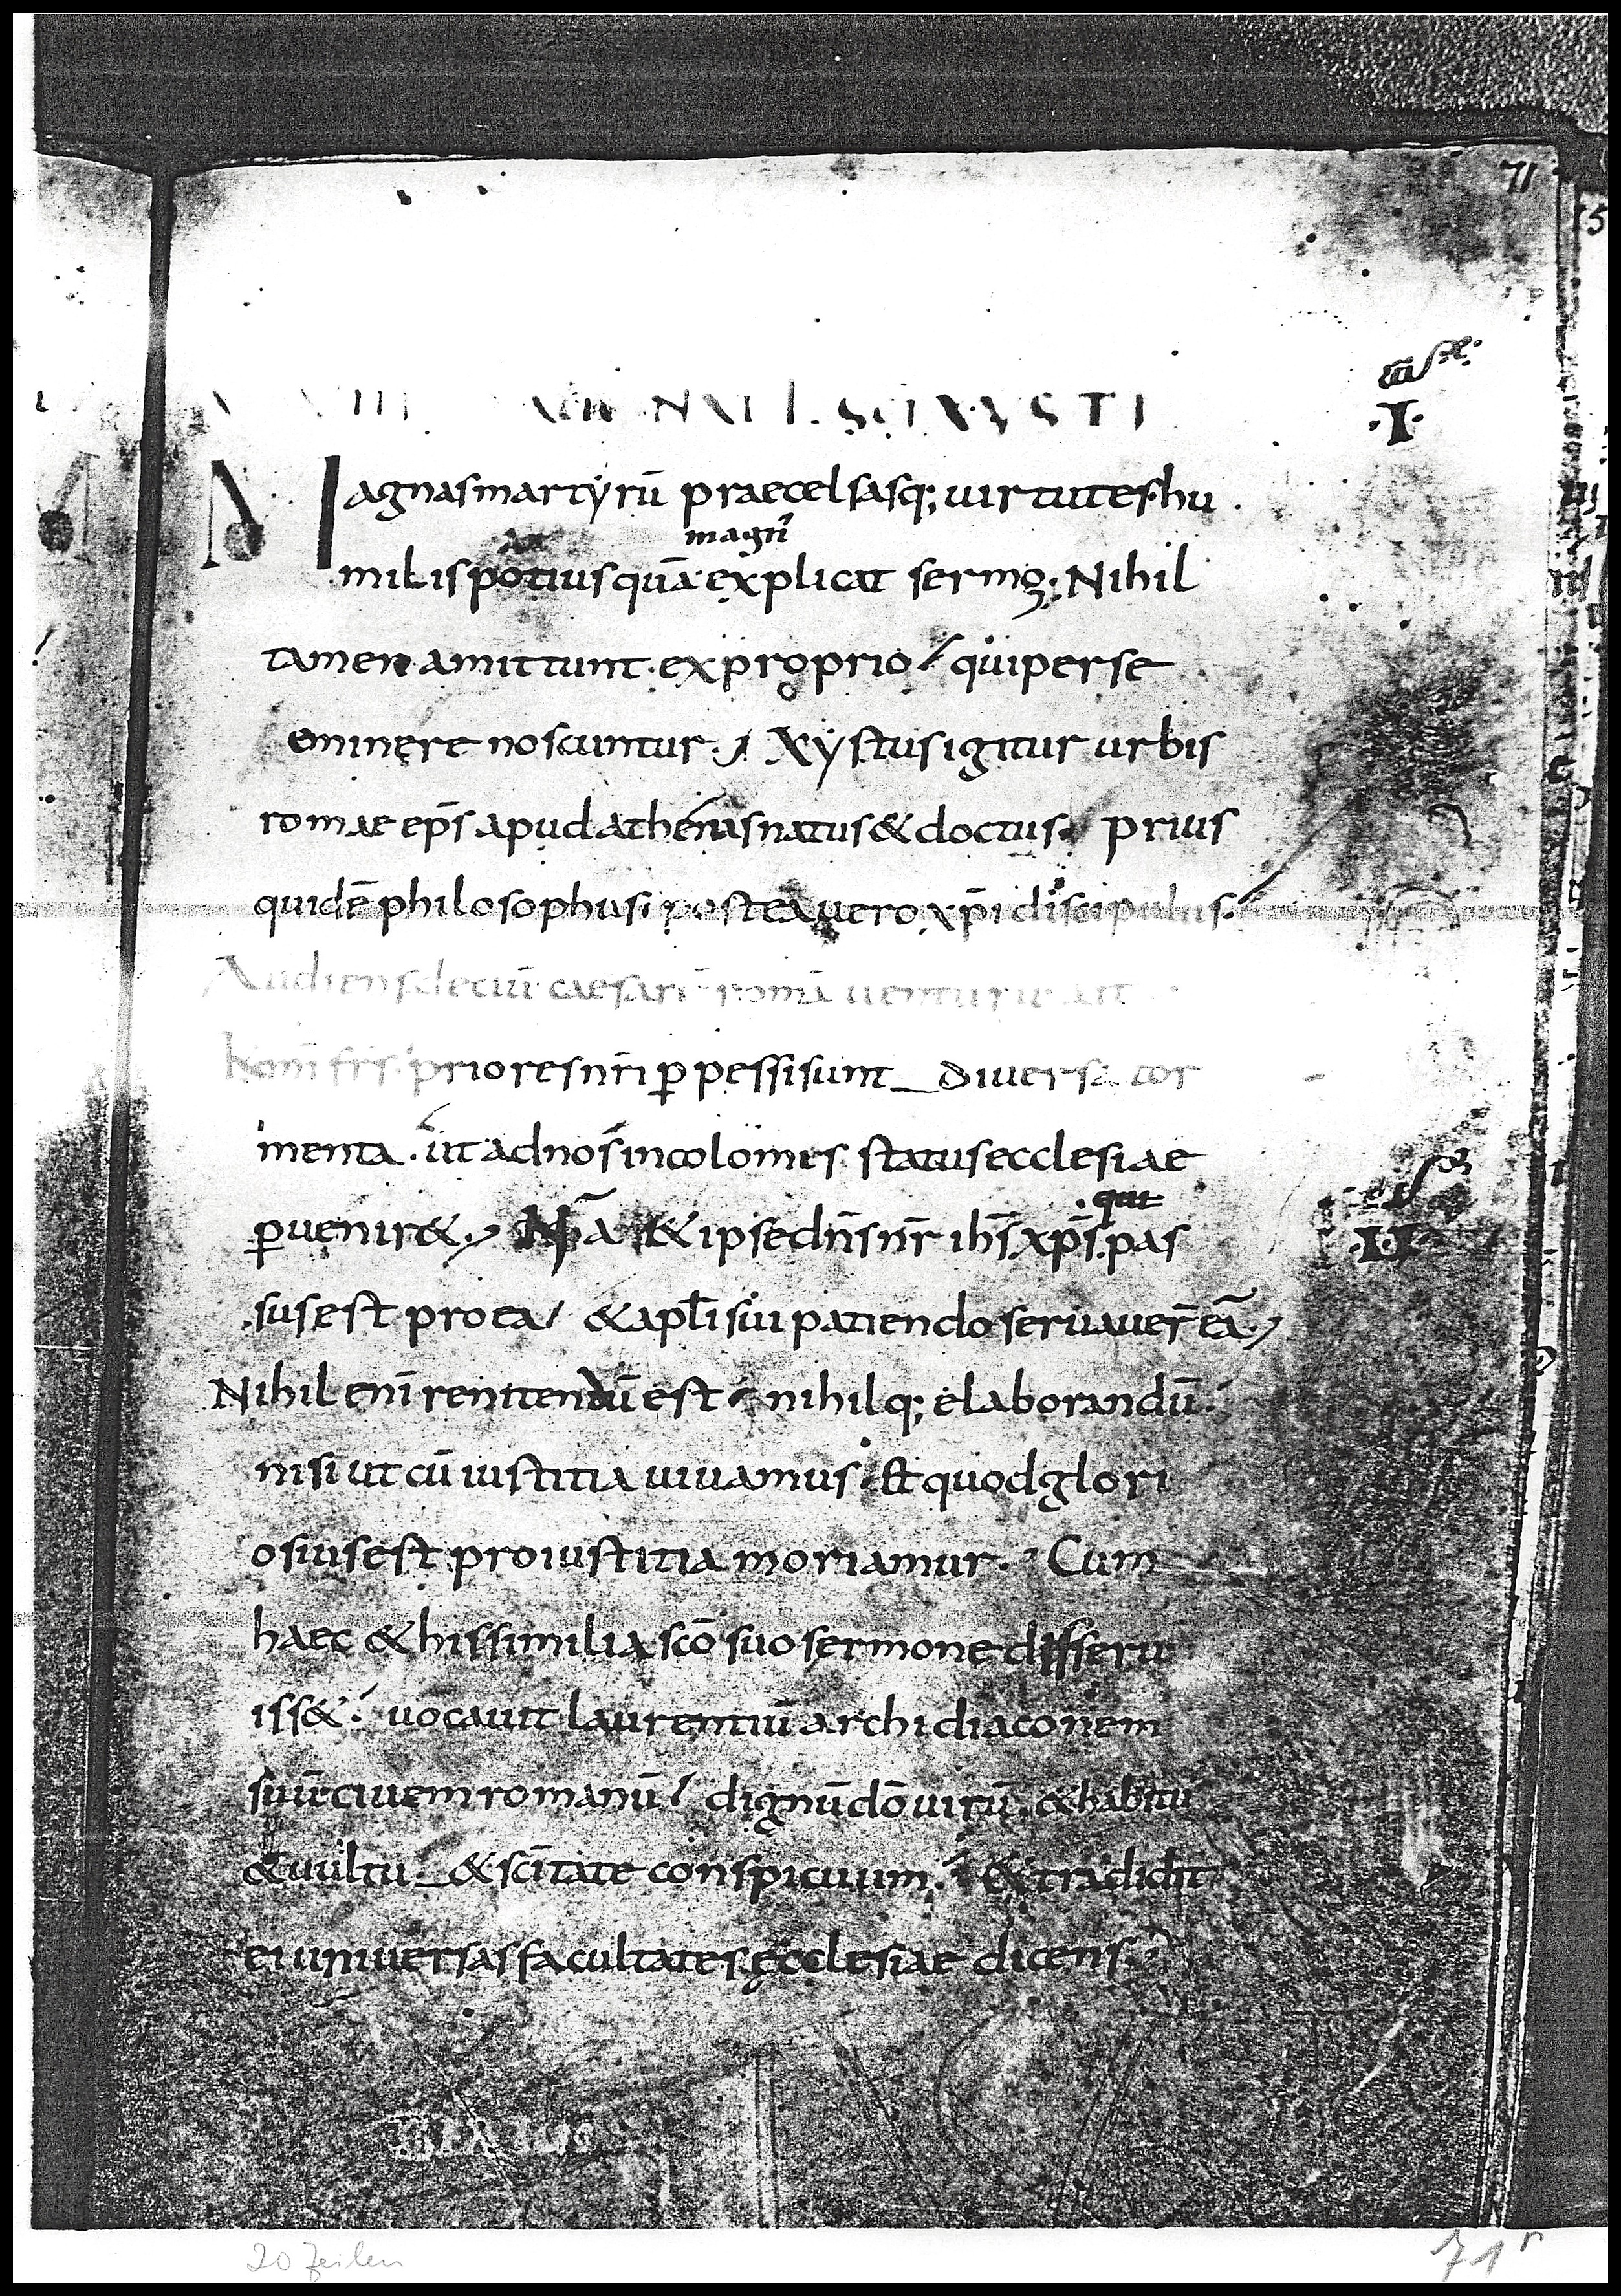 71
NAT̄ SCI XYSTI
·I·
Magnasmartyrū praecelsasq; uirtutes·hu
magñ
milispotiusquā·explicat sermo; Nihil
tamen amittunt·exproprio quiperse
eminere noscuntur; Xystusigitur urbis
romae ep̄s apud athenasnatus&doctus· prius
quidē philosophus; posteauero xp̄i discipulus·
Audiens decium caesarē romā uenturū ait
boni fr̄s· prioresnr̄i ꝑpessisunt diuersa tor
menta· ut adnos incolomes statusecclesiae
quit
ꝑuenir&; Nā &ipsedn̄s nr̄ ih̄s xp̄s·pas
·II·
susest proea &apl̄i sui patiendo seruauer̄ eā;
Nihil enī renitendū est nihilq; elaborandū·
nisi ut cū iustitia uiuamus· Et quodglori
osiusest proiustitia moriamur· Cum
haec &hissimilia sc̄o suo sermone disseru
iss&· uocauit laurentiū archidiaconem
suū·ciuem romanū dignū dō uirū· &habitu
&uultu &sc̄itate conspicuum· &tradidit
ei uniuersasfacultates ecclesiae dicens·
20 Zeilen
71r